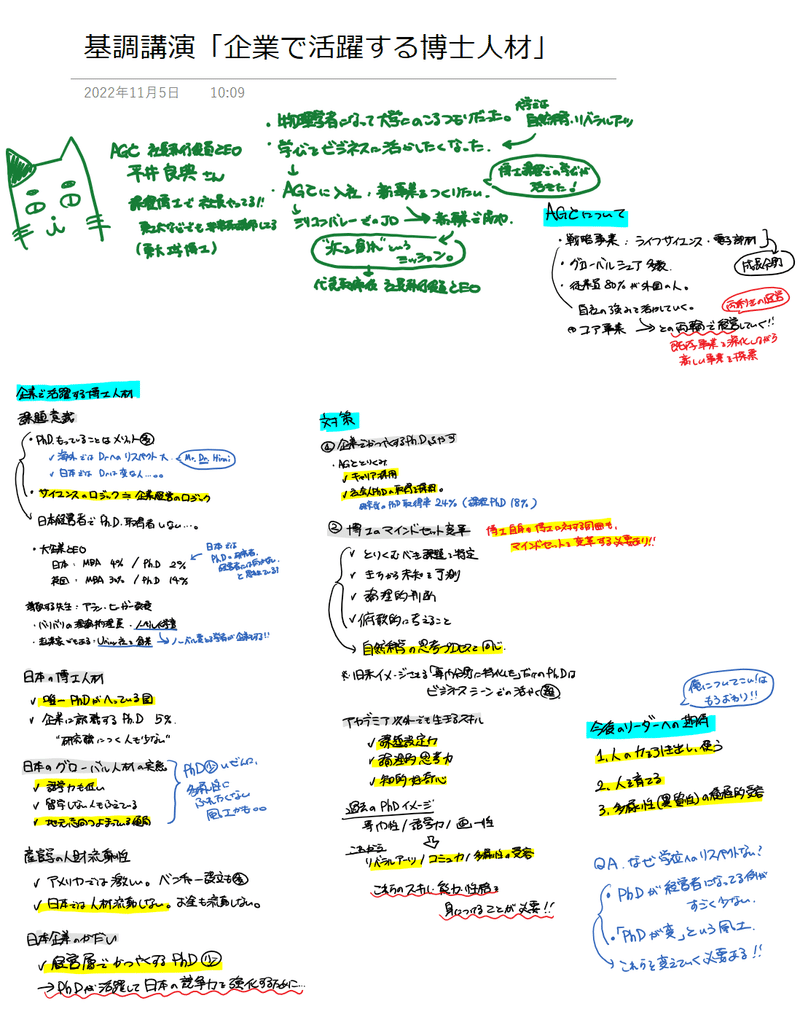 基調講演「企業で活躍する博士人材」
2022年11月5日 10:09
AGC 社長執行役員CEO
平井良典さん
課程博士で社長やってる!!
(東大工学博士)
・物理学者になって大学にのこるつもりだった。
大学では
自然科学・リベラルアーツ
・学んだことをビジネスに活かしたくなった。
博士課程での学びが
活きた!
・AGCに入社、新事業をつくりたい。
シリコンバレーでのJD → 新事業で成功。
というミッション。
代表取締役 社長執行役員CEO
AGCについて
・戦略事業:ライフサイエンス・電子部材
成長分野
・グローバルシェア多数。
・従業員80%が外国の人。
自社の強みを活かしていく。
コア事業 → との両輪で経営していく!!
両利きの経営
既存事業を深化しながら
新しい事業を探索
企業で活躍する博士人材
課題意識
・PhDもっていることはメリット多
✓ 海外ではDrへのリスペクト大。 Mr. Dr. Hirai
✓ 日本ではDrは変な人…。。
・サイエンスのロジック≒企業経営のロジック
日本経営者でPh.D.取得者しない…。
・大企業CEO
日本:MBA 4% / Ph.D 2%
英国:MBA 30% / Ph.D 14%
日本では
Ph.D.取得者、
経営者には向かない
と思われている?
尊敬する先生:アラン・ヒーガー教授
・バリバリの理論物理屋・ノーベル化学賞
・起業家でもある・Uniax社を創業
→ ノーベル賞とる学者が企業もする!!
日本の博士人材
✓ 唯一PhDがへっている国
✓ 企業に就職するPh.D 5%.
"研究職につく人も少ない"
日本のグローバル人材の実態
✓ 語学力も低い
✓ 留学しない人もふえている
✓ 地元志向つよまっている傾向
PhD少いぜんに、
多様性に
ふれたくない
風土かも。。
産官学の人財流動性
✓ アメリカでは激しい。ベンチャー設立も多
✓ 日本では人材流動しない。お金も流動しない。
日本企業のかだい
✓ 経営層でかつやくするPhD少
→ PhDが活躍して日本の競争力を強化するために…
対策
① 企業でかつやくするPh.D.ふやす
・AGCとりくみ
✓ キャリア採用
✓ 社会人PhDの取得を援助。
PhD取得率 24% (課程PhD 18%)
② 博士のマインドセット変革
博士自身も博士に対する周囲も、
マインドセットを変革する必要あり!!
✓ とりくむべき課題を特定
✓ 未知を予測
✓ 論理的判断
✓ 俯瞰的に考えること
→ 自然科学の思考プロセスと同じ.
※ 旧来イメージである「専門分野に特化した」だけのPh.Dは
ビジネスシーンでの活やく難
アカデミア以外でも生きるスキル
✓ 課題設定力
✓ 論理的思考力
✓ 知的好奇心
過去のPhDイメージ
専門性 / 語学力 / 画一性
これから
リベラルアーツ / コミュ力 / 多様性の受容
これらのスキル・能力・性格を
身につけることが必要!!
俺についてこい!は
もうおわり!!
今後のリーダーへの期待
1. 人の力を引き出し、使う
2. 人を育てる
3. 多様性(異質性)の積極的受容
QA. なぜ学位へのリスペクトない?
・PhDが経営者になってる例が
すごく少ない。
・「PhDが変」という風土.
→ これらを変えていく必要ある!!